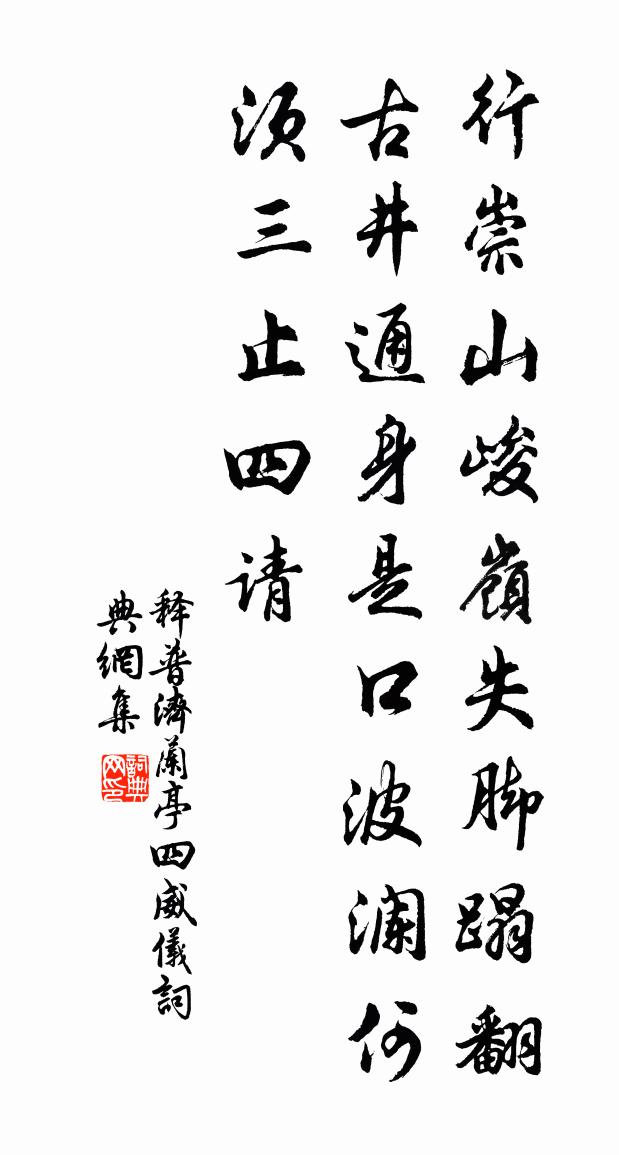 行崇山峻嶺失脚蹋翻
古井通身是口波瀾何
須三止四请
释普濟蘭亭四威儀詞
典網集
詞典网印